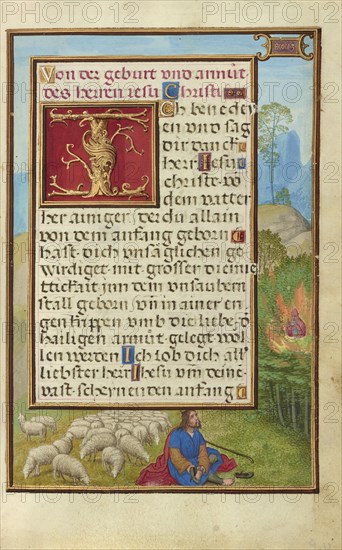 Von der geburt vnd armůt
des herren iesu Christi
Ich benedey
en vnd sag
dir danck
herr Iesu
christe vō
dem vatter
her ainiger der du allain
von dem anfang geborn
hast dich vnsaglichen ge
wirdiget mit grosser diemie
ttickait jnn dem vnsaubem
stall geborn vn̄ in ainer en
gen krippen vmb die liebe d
hailigen armůt gelegt wol
len werden Ich lob dich all
liebster herr Ihesu vm̄ deinē
vast schernenden anfang